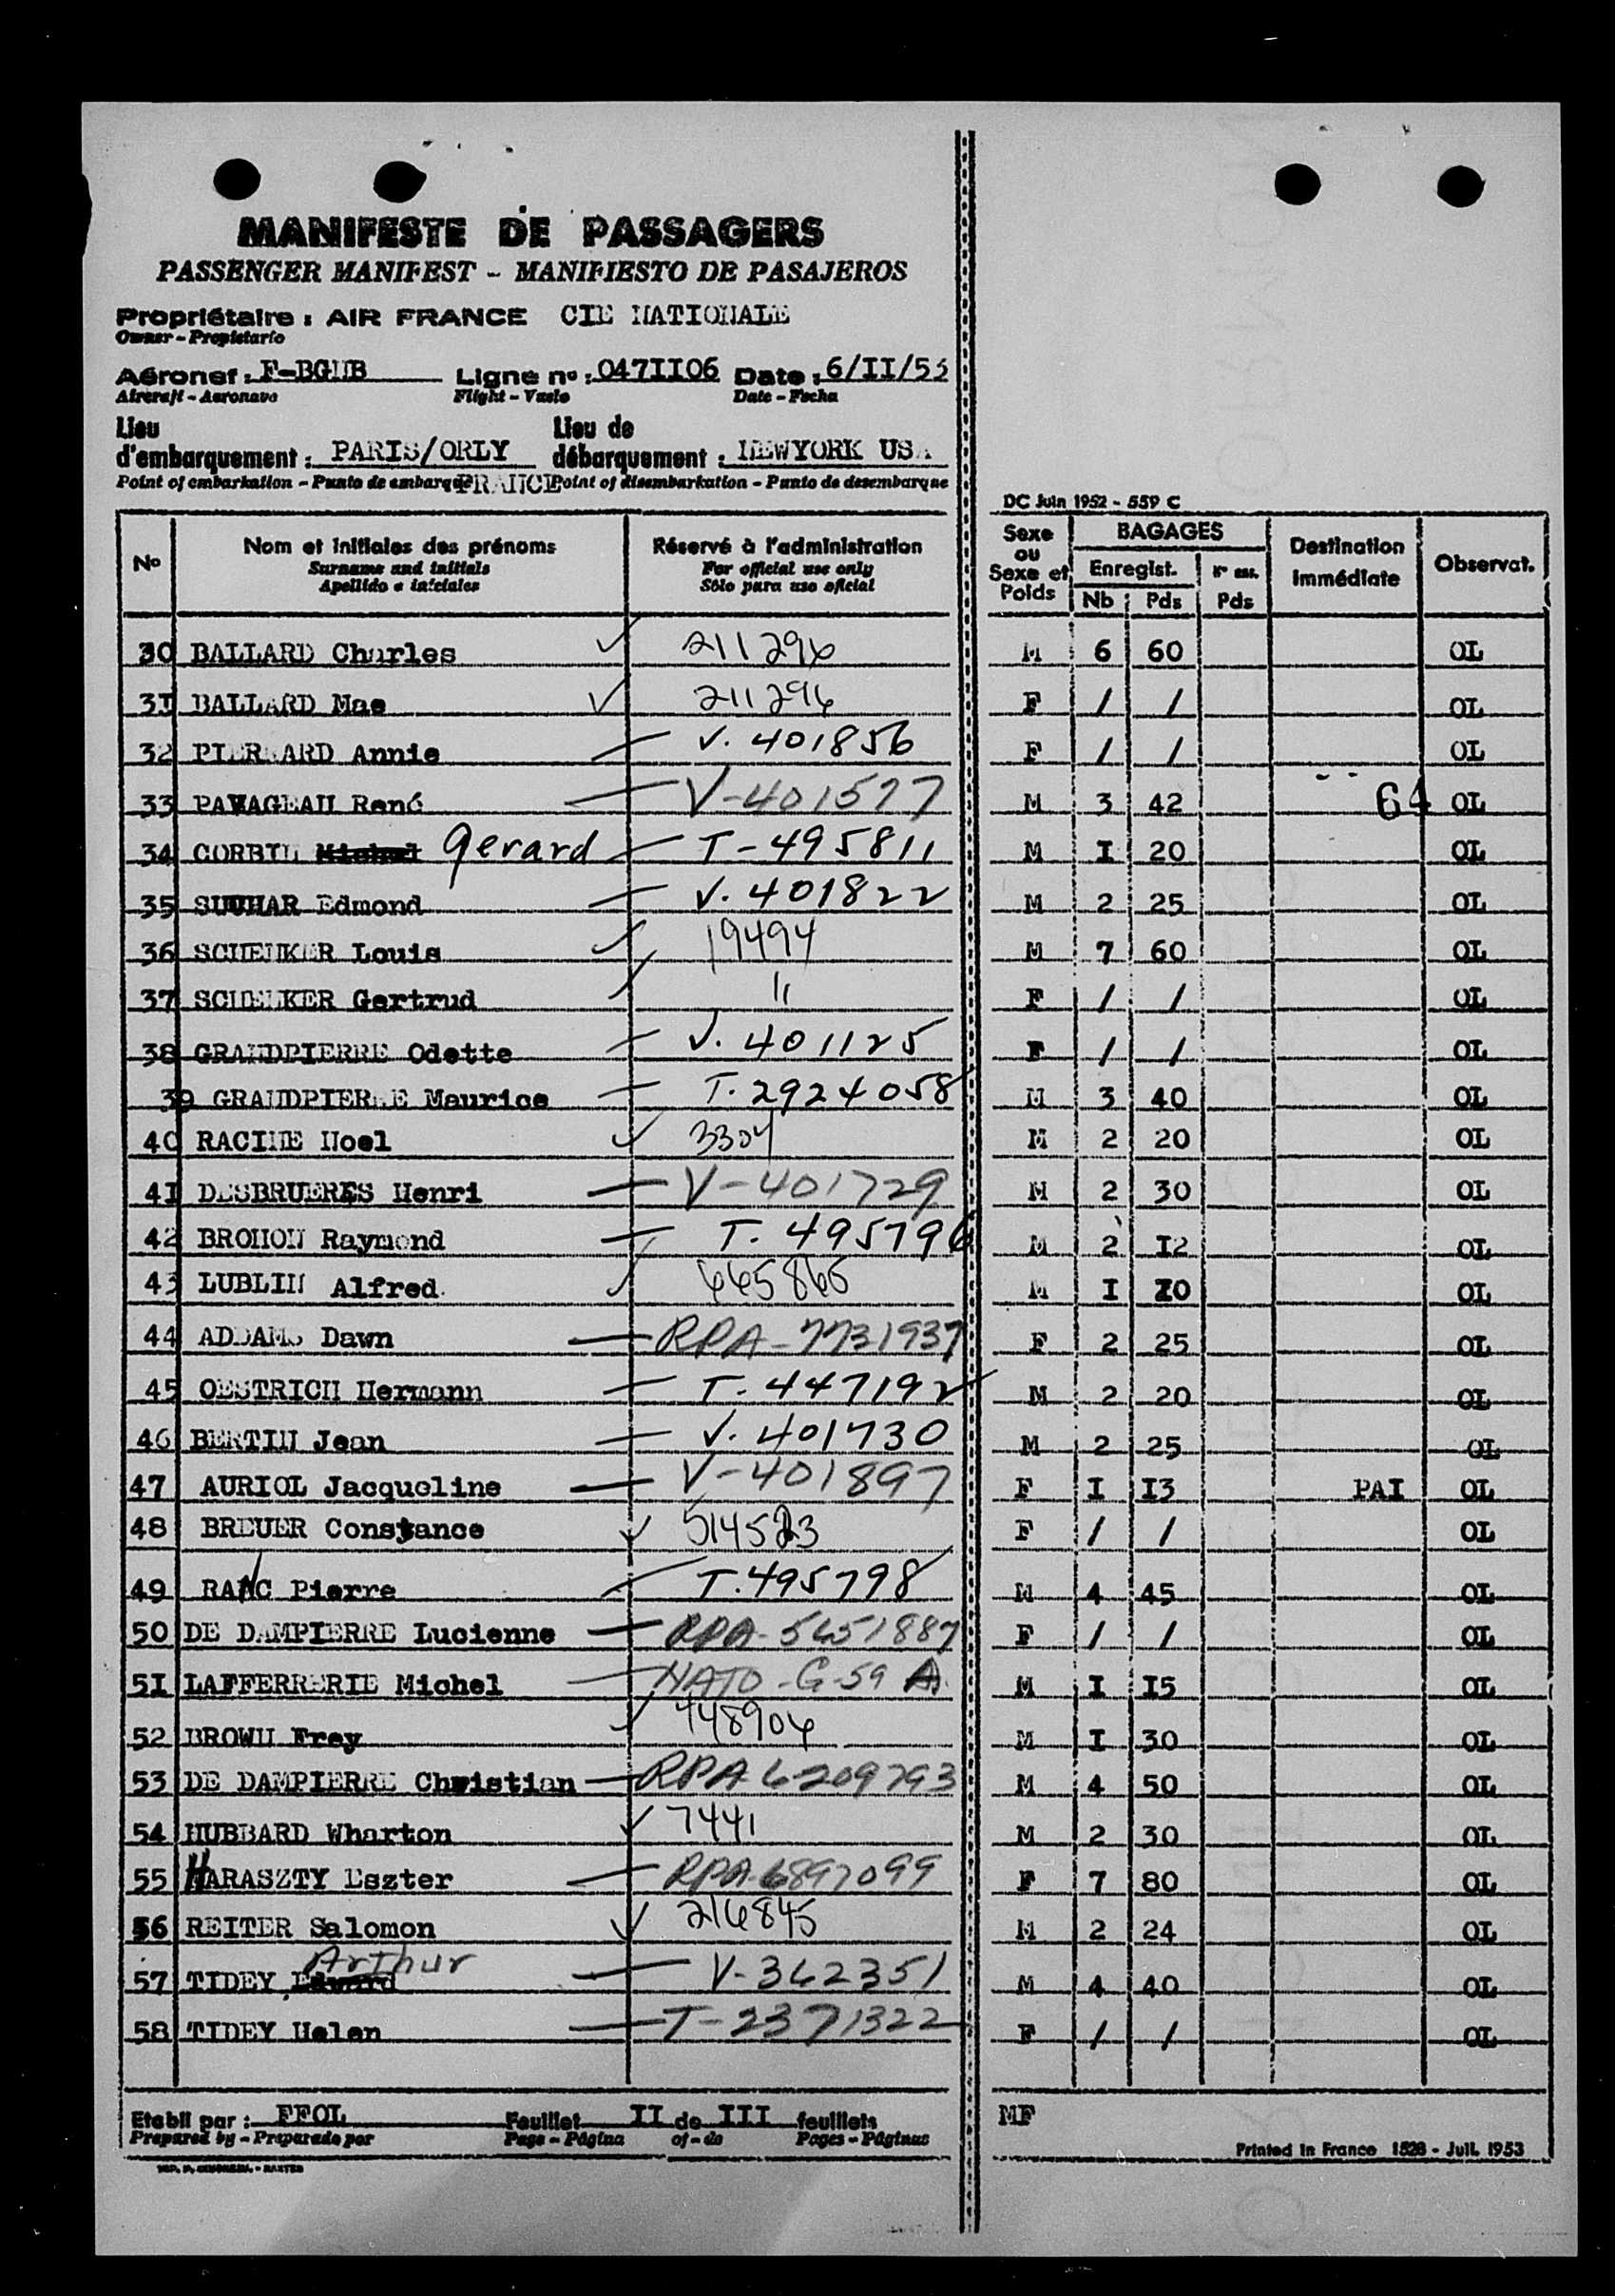 MANIFESTE DE PASSAGERS
PASSENGER MANIFEST - MANIFIESTO DE PASAJEROS
Propriétaire : AIR FRANCE CIE NATIONALE
Owner - Propietario
Aéronef : F-BGNB Ligne no : 047II06 Date : 6/II/53
Aircraft - Aeronave Flight - Vuelo Date - Fecha
Lieu d'embarquement : PARIS/ORLY Lieu de débarquement : NEWYORK USA
Point of embarkation - Punto de embarque FRANCE Point of disembarkation - Punto de desembarque
DC Juin 1952 - 559 C
No Nom et initiales des prénoms Réservé à l'administration Sexe ou Sexe et Poids BAGAGES Destination immédiate Observat.
Surname and initials For official use only Enregist.
Apellido e iniciales Sólo para uso oficial Nb Pds Pds
30 BALLARD Charles ✓ 211296 M 6 60 OL
3I BALLARD Mae ✓ 211296 F / / OL
32 PIERRARD Annie — V. 401856 F / / OL
33 PAVAGEAU René — V-401577 M 3 42 64 OL
34 CORBIN Gerard — T-495811 M I 20 OL
35 SUUHAR Edmond — V. 401822 M 2 25 OL
36 SCHENKER Louis ✓ 19494 M 7 60 OL
37 SCHENKER Gertrud ✓ " F / / OL
38 GRANDPIERRE Odette — V. 401125 F / / OL
39 GRANDPIERRE Maurice — T. 2924058 M 3 40 OL
40 RACINE Noel ✓ 3304 M 2 20 OL
4I DESBRUERES Henri — V-401729 M 2 30 OL
42 BROHON Raymond — T. 495796 M 2 I2 OL
43 LUBLIN Alfred ✓ 665866 M I I0 OL
44 ADDAMS Dawn — RPA-7731937 F 2 25 OL
45 OESTRICH Hermann — T. 447192 M 2 20 OL
46 BERTIN Jean — V. 401730 M 2 25 OL
47 AURIOL Jacqueline — V-401897 F I I3 PAI OL
48 BREUER Constance ✓ 514523 F / / OL
49 RANC Pierre — T. 495798 M 4 45 OL
50 DE DAMPIERRE Lucienne — RPA-5651887 F / / OL
5I LAFFERRERIE Michel — NATO-G-59 A M I I5 OL
52 BROWN Frey ✓ 448906 M I 30 OL
53 DE DAMPIERRE Christian — RPA 6209793 M 4 50 OL
54 HUBBARD Wharton ✓ 7441 M 2 30 OL
55 HARASZTY Eszter — RPA-6897099 F 7 80 OL
56 REITER Salomon ✓ 216845 M 2 24 OL
Arthur
57 TIDEY Edward — V-362351 M 4 40 OL
58 TIDEY Helen — T-2371322 F / / OL
Etabli par : FFOL Feuillet II de III feuillets MF
Prepared by - Preparado por Page - Página of - de Pages - Páginas
Printed in France 1528 - Juil. 1953